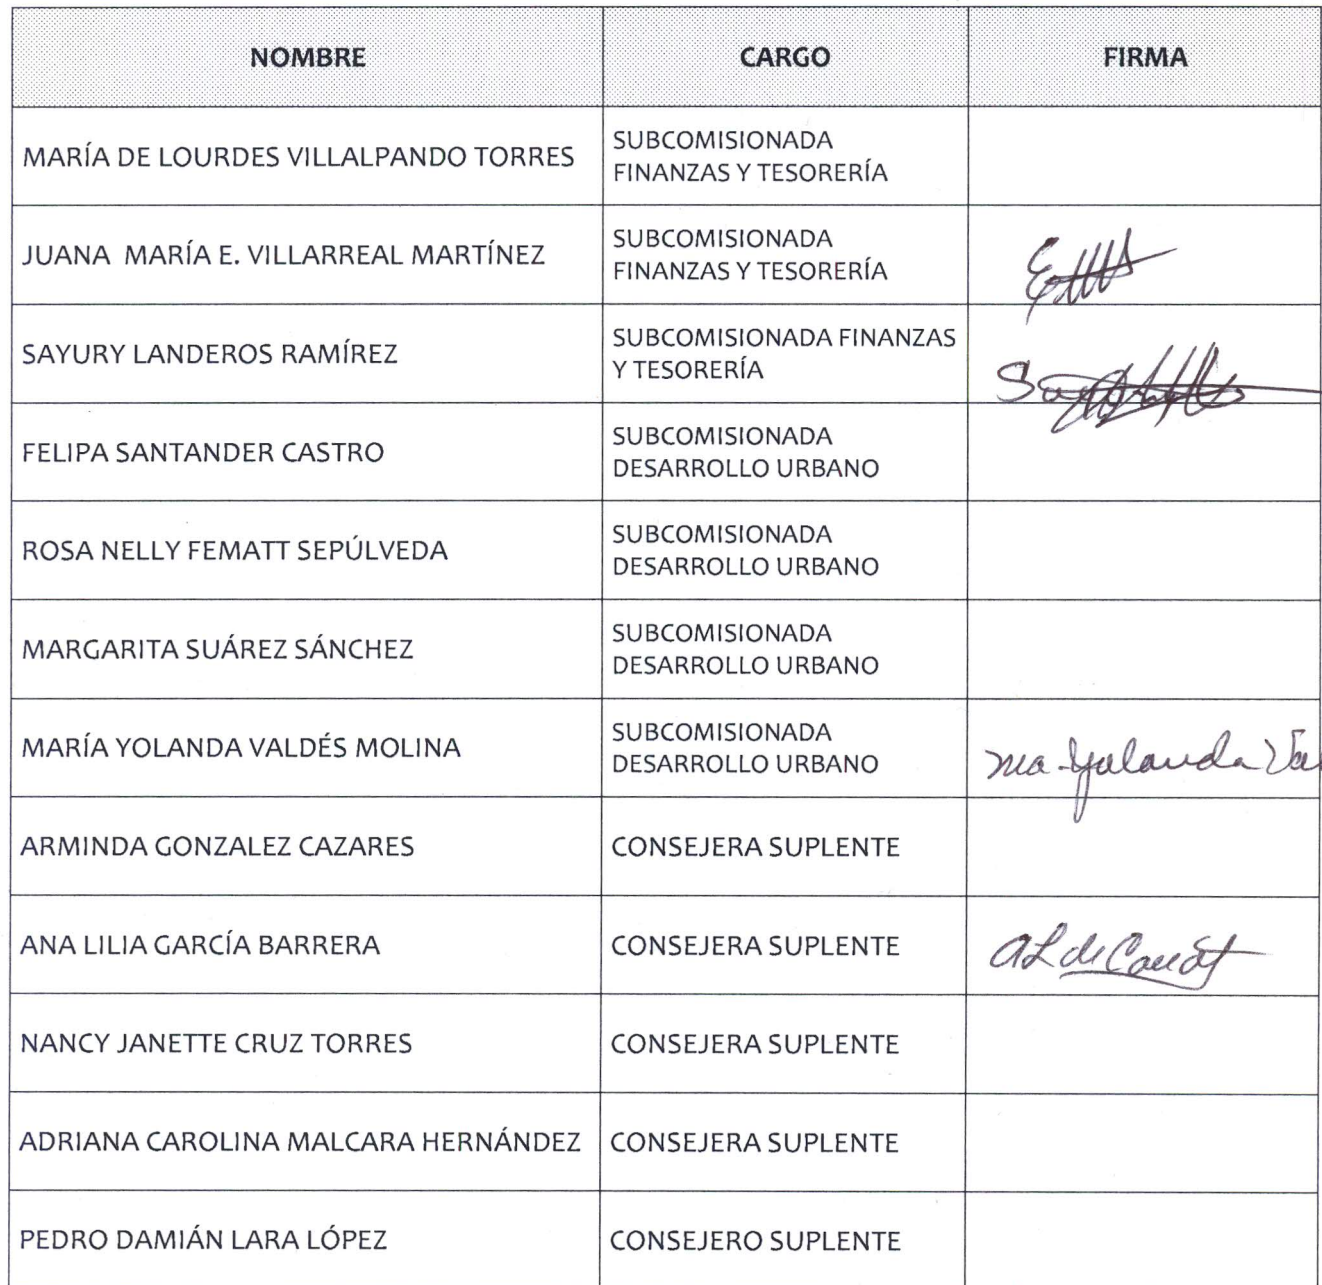 NOMBRE CARGO FIRMA
MARÍA DE LOURDES VILLALPANDO TORRES
SUBCOMISIONADA
FINANZAS Y TESORERÍA
JUANA MARÍA E. VILLARREAL MARTÍNEZ
SUBCOMISIONADA
FINANZAS Y TESORERÍA
SAYURY LANDEROS RAMÍREZ
SUBCOMISIONADA FINANZAS
Y TESORERÍA
FELIPA SANTANDER CASTRO
SUBCOMISIONADA
DESARROLLO URBANO
ROSA NELLY FEMATT SEPÚLVEDA
SUBCOMISIONADA
DESARROLLO URBANO
MARGARITA SUÁREZ SÁNCHEZ
SUBCOMISIONADA
DESARROLLO URBANO
MARÍA YOLANDA VALDÉS MOLINA
SUBCOMISIONADA
DESARROLLO URBANO
Ma. Yolanda Va
ARMINDA GONZALEZ CAZARES CONSEJERA SUPLENTE
ANA LILIA GARCÍA BARRERA CONSEJERA SUPLENTE
NANCY JANETTE CRUZ TORRES CONSEJERA SUPLENTE
ADRIANA CAROLINA MALCARA HERNÁNDEZ CONSEJERA SUPLENTE
PEDRO DAMIÁN LARA LÓPEZ CONSEJERO SUPLENTE